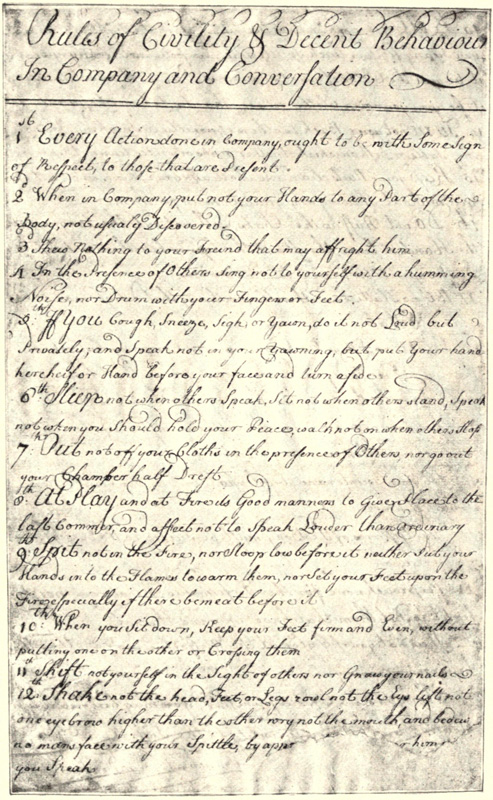 Rules of Civility & Decent Behaviour
In Company and Conversation
1st Every Action done in Company, ought to be with Some Sign
of Respect, to those that are Present.
2d When in Company, put not your Hands to any Part of the
Body, not usualy Discovered
3d Shew Nothing to your Freind that may affright him
4 In the Presence of Others Sing not to yourself with a humming
Noise, nor Drum with your Fingers or Feet
5th If You Cough, Sneeze, Sigh, or Yawn, do it not Loud but
Privately; and Speak not in your Yawning, but put Your hand
kercheif or Hand before your face and turn aside
6th Sleep not when others Speak, Sit not when others stand, Speak
not when you Should hold your Peace, walk not on when others Stop
7th Put not off your Cloths in the presence of Others, nor go out
your Chamber half Drest
8th At Play and at Fire its Good manners to Give Place to the
last Commer, and affect not to Speak Louder than Ordinary
9th Spit not in the Fire, nor Stoop low before it neither Put your
Hands into the Flames to warm them, nor Set your Feet upon the
Fire especially if there be meat before it
10th When you Sit down, Keep your Feet firm and Even, without
putting one on the other or Crossing them
11th Shift not yourself in the Sight of others nor Gnaw your nails
12th Shake not the head, Feet, or Legs rowl not the Eys lift not
one eyebrow higher than the other wry not the mouth, and bedew
no mans face with your Spittle, by app r him
you Speak